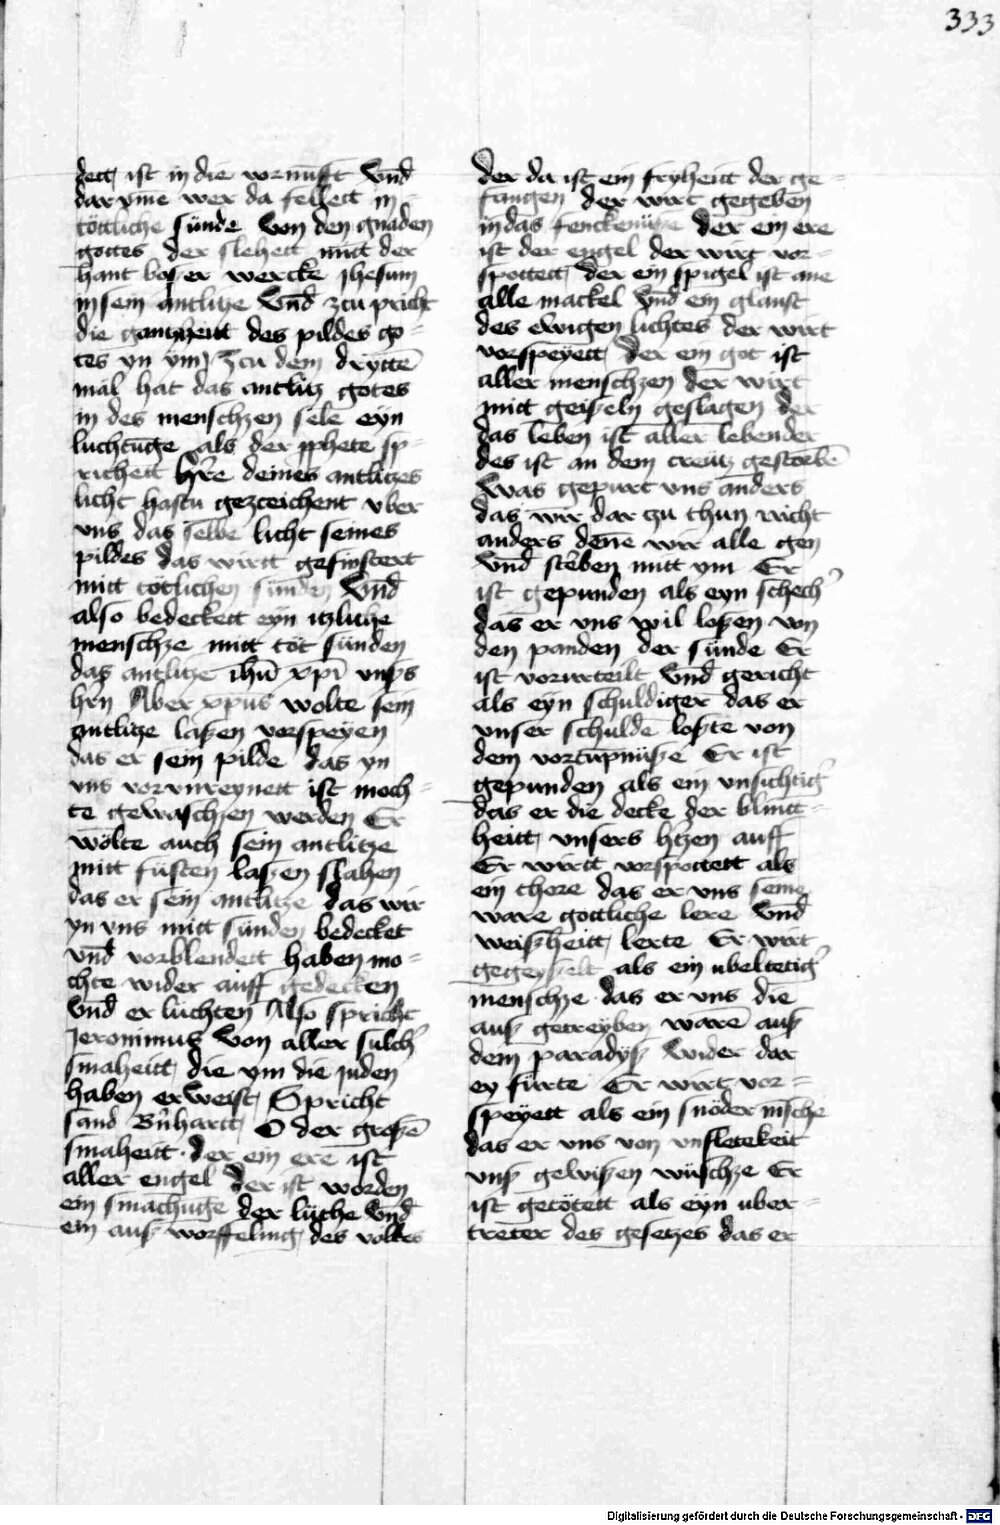 333
dett ist in die vornūfft Vnd̄
dar vme wer da fellett in
töttliche sünde von den gnaden
gottes der slehett mitt der
hant boser wercke Jhesum
in sein antlitze Vnd̄ zcu pricht
die gantzheitt des pildes go-
tes yn ym Zcu dem dryttē
mal hat das antlitz gotes
in des menschzen sele eyn
luchtuge als der pphete sp-
richett hr̄e deines antlitzes
licht hastu gezceichent vber
vns das selbe licht seines
pildes das wirtt gefinstert
mitt tötlichen sunden Vnd̄
also bedeckett eyn itzliche
menschze mitt töt sünden
das antlitze ihū xp̄i vnßs
hrn Aber xp̄us wolte sein
antlitze laßen vorspeyen
das er sein pilde das yn
vns vorvnreynett ist moch-
te gewaschzen werden Er
wolte auch sein antlitze
mitt füsten laßen slahen
das er sein antlitze das wir
yn vns mitt sünden bedecket
vnd̄ vorblendett haben mo-
chte wider auff gedecken
Vnd̄ er luchten Also spricht
Jeronimus Von aller sulch'
smaheitt die ym die juden
haben erweist Spricht
sand Bn̄hartt O der großē
smaheitt der ein ere ist
aller engel der ist worden
ein smachuge der lüthe Vnd̄
ein auß worffeling des volkes
der da ist ein fryheitt der ge-
fangen der wirt gegeben
in das fenckenüße der ein ere
ist der engel der wirt vor-
spottett der ein spigel ist ane
alle mackel Vnd̄ ein glanst
des ewigen lichtes der wirt
vorspeyett der ein got ist
aller menschzen der wirt
mitt geißeln geslagen der
das leben ist aller lebender
des ist an dem creütz gestorbē
Was gepurt vns anders
das wir dar zu thun nicht
anders dene wir alle gen
Vnd̄ sterben mitt ym Er
ist gepunden als eyn schech'
das er vns wil loßen von
den panden der sünde Er
ist vorurteilt Vnd̄ gericht
als eyn schuldiger das er
vnser schulde loßte von
dem vortüpnüße Er ist
gepunden als ein vnsichtig'
das er die decke der blintt-
heitt vnsers htzen auff
Er wirtt vorspottett als
ein thore das er vns seine
ware gottliche lere Vnd̄
weißheitt lerte Er wirt
gegeyßelt als ein ubeltetig'
menschze das er vns die
auß getreyben warē auß
dem paradyß wider dar
ey fürte Er wirt vor-
speyett als ein snöder msche
das er vns von vnfletekeit
vnß gewißen wüschze Er
ist getötett als eyn uber-
treter des gesetzes das er
Digitalisierung gefördert durch die Deutsche Forschungsgemeinschaft - DFG